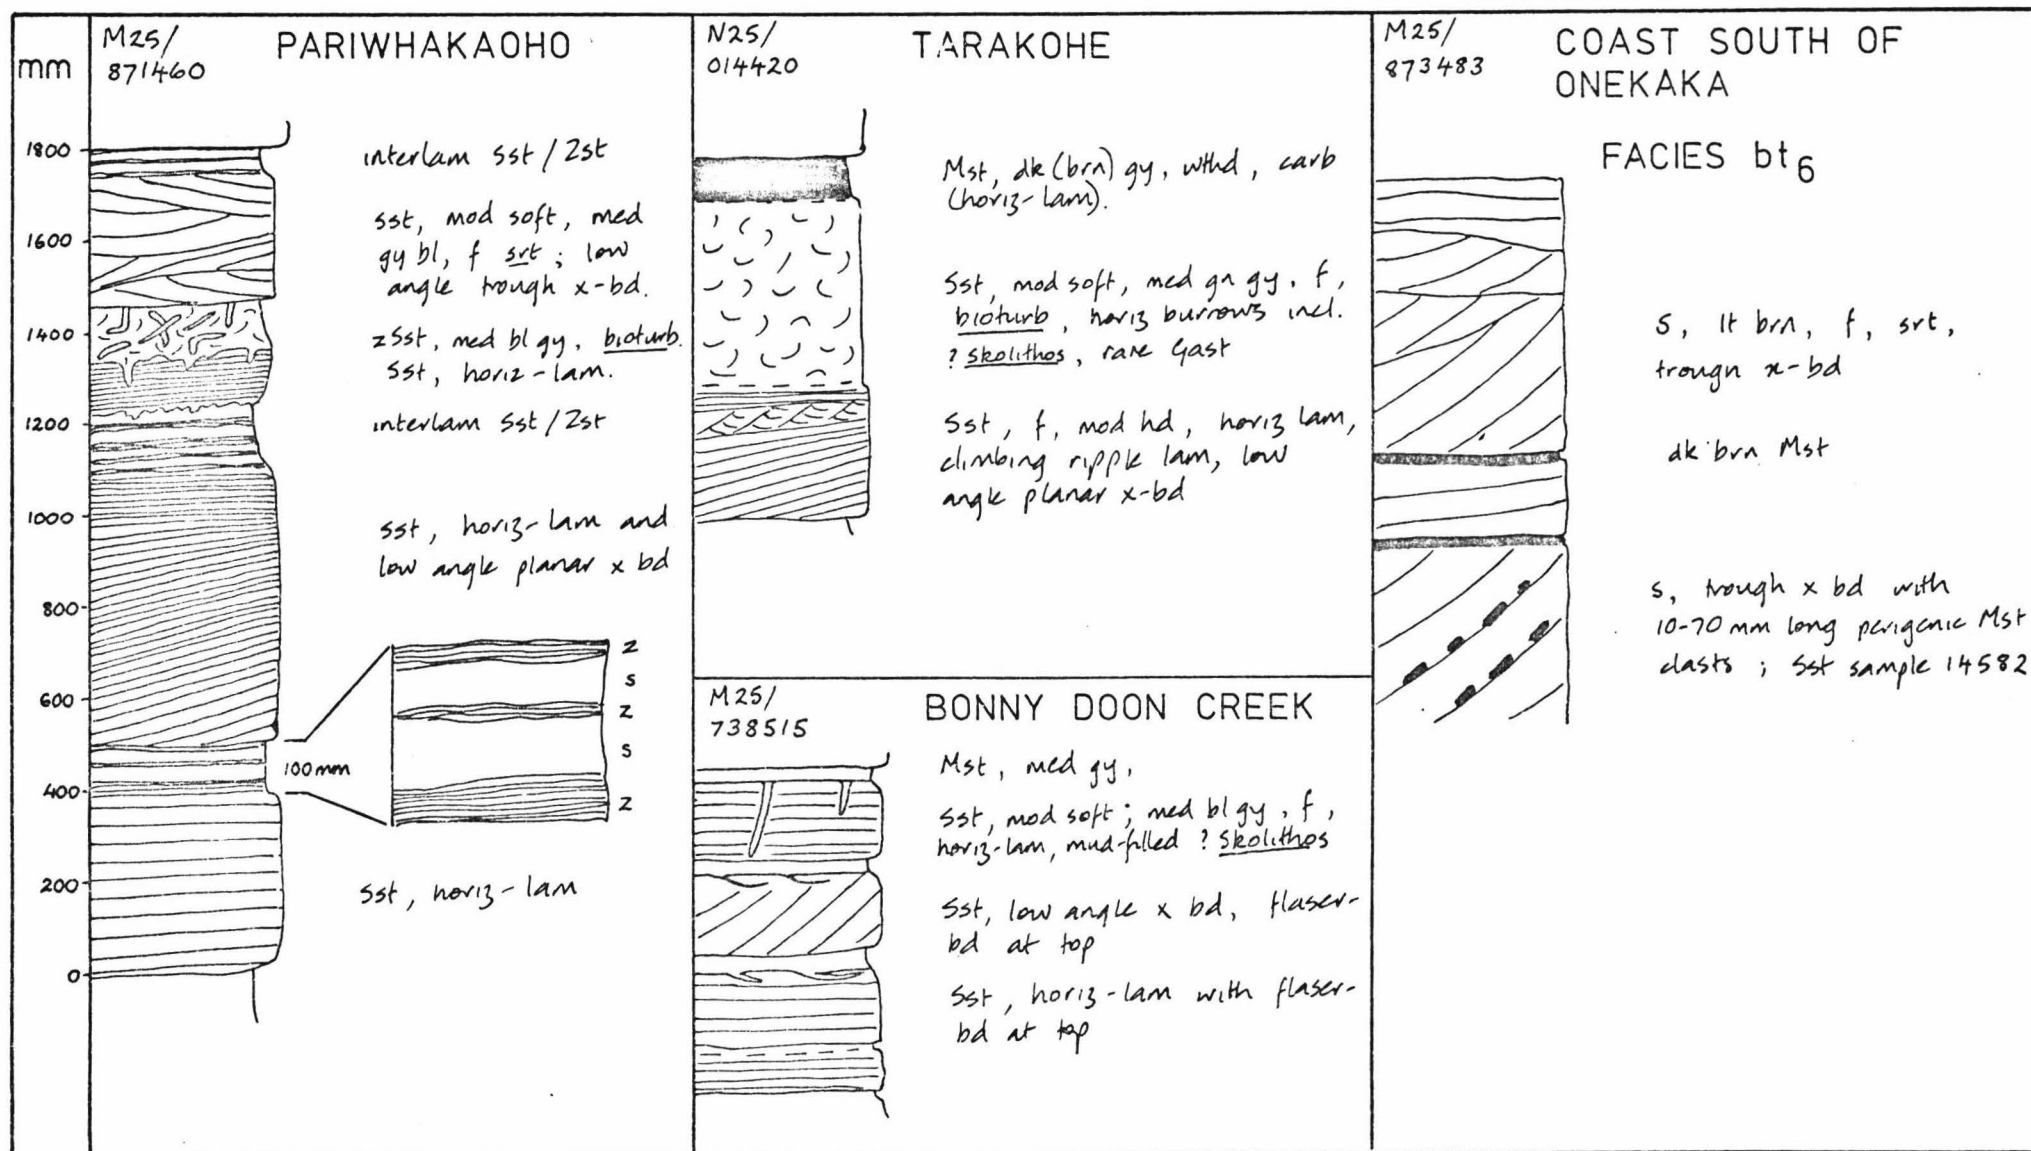 mm
M25/
871460
PARIWHAKAOHO
1800
1600
1400
1200
1000
800
600
400
200
0
interlam Sst / Zst
Sst, mod soft, med
gy bl, f srt ; low
angle trough x-bd.
zSst, med bl gy, bioturb.
Sst, horiz-lam.
interlam Sst / Zst
Sst, horiz-lam and
low angle planar x bd
100mm
z
s
z
s
z
Sst, horiz-lam
N25/
014420
TARAKOHE
Mst, dk (brn) gy, wthd, carb
(horiz-lam).
Sst, mod soft, med gn gy, f,
bioturb, horiz burrows incl.
? Skolithos, rare Gast
Sst, f, mod hd, horiz lam,
climbing ripple lam, low
angle planar x-bd
M25/
738515
BONNY DOON CREEK
Mst, med gy,
Sst, mod soft; med bl gy, f,
horiz-lam, mud-filled ? Skolithos
Sst, low angle x bd, flaser-
bd at top
Sst, horiz-lam with flaser-
bd at top
M25/
873483
COAST SOUTH OF
ONEKAKA
FACIES bt6
S, lt brn, f, srt,
trough x-bd
dk brn Mst
S, trough x bd with
10-70 mm long perigenic Mst
clasts ; Sst sample 14582